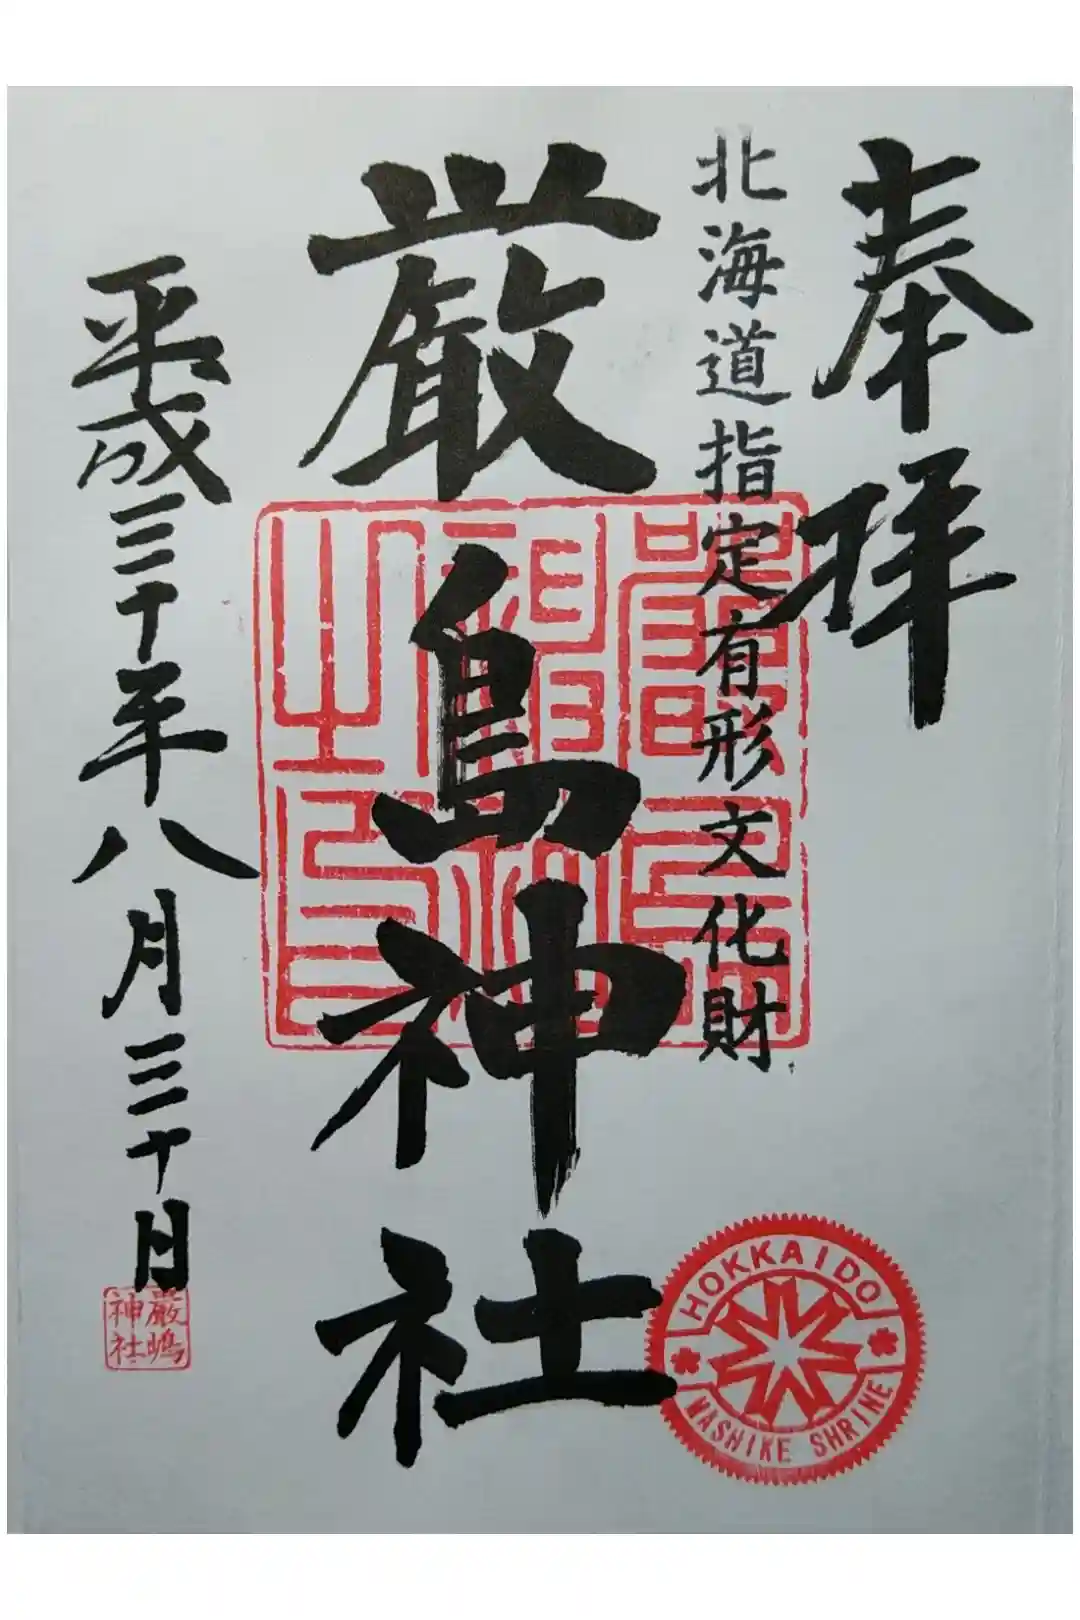 奉拝
北海道指定有形文化財
厳島神社
平成三十年八月三十日
巖嶋
神社
HOKKAIDO
MASHIKE SHRINE